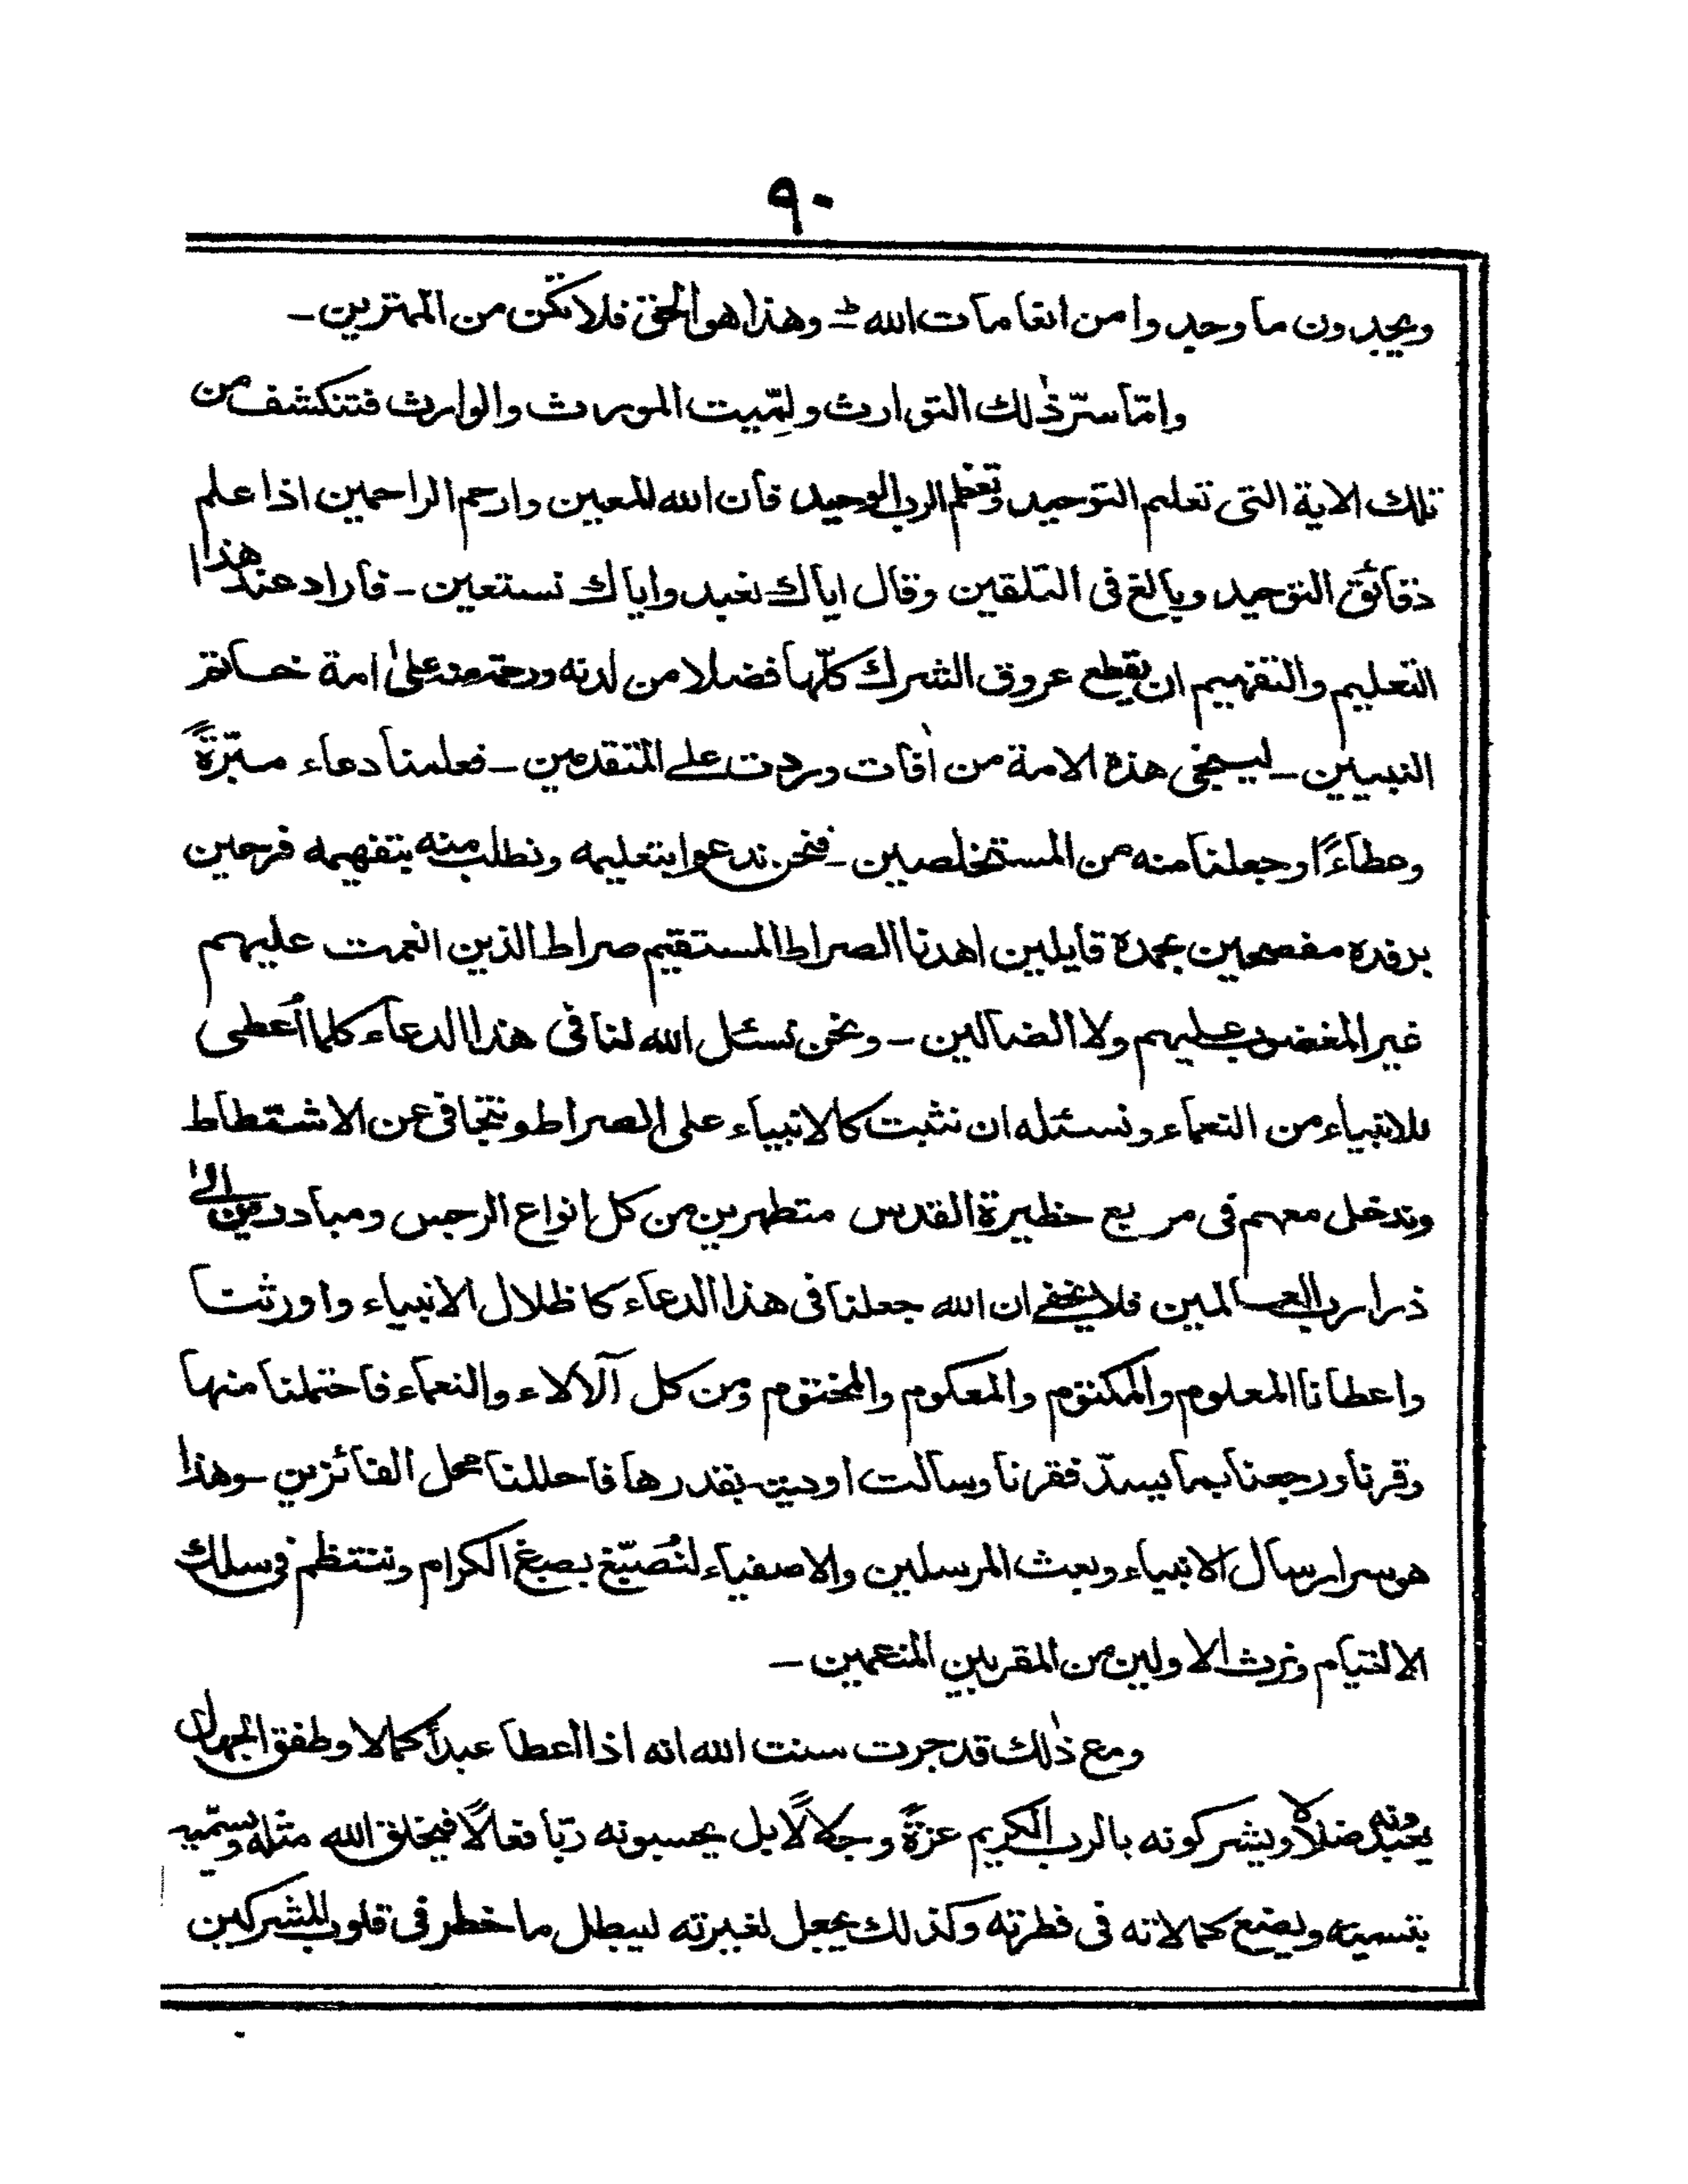 ٩٠
ويجدون ما وجدوا من انعامات الله ـ وهذا هو الحق فلا تكن من الممترين ـ
وامّا سرّ ذٰلك التوارث ولِمّيت المورث والوارث فتنكشف من
تلك الاية التى تعليم التوحيد وتعظم الرب الوحيد فان الله المعين وارحم الراحمين اذا علم
دقائق التوحيد وبالغ فى التلقين وقال اياك نعبد واياك نستعين ـ فاراد عند هذا
التعليم والتفهيم ان يقطع عروق الشرك كلّها فضلا من لدنه ورحمة منه علىٰ امة خاتم
النبيين ـ لينجى هذه الامة من اٰفات وردت على المتقدمين ـ فعلمنا دعاء مبرّةً
وعطاءً وجعلنا منه من المستخلصين ـ فنحن ندعوا بتعليمه ونطلب منه بتفهيمه فرحين
برفده مفصحين بحمده قايلين اهدنا الصراط المستقيم صراط الذين انعمت عليهم
غير المغضوب عليهم ولا الضالين ـ ونحن نسئل الله لنا فى هذا الدعاء كلما اُعطى
للانبياء من النعماء ونسئله ان نثبت كالانبياء على الصراط ونتجافى عن الاشتطاط
وندخل معهم فى مربع حظيرة القدس متطهرين من كل انواع الرجس ومبادرين الىٰ
ذرا رب العالمين فلا يخفى ان الله جعلنا فى هذا الدعاء كاظلال الانبياء واورثنا
واعطانا المعلوم والمكتوم والمعكوم والمختوم ومن كل آلالاء والنعماء فاحتملنا منها
وقرنا ورجعنا بما يسدّ فقرنا وسالت اودية بقدرها فاحللنا محل الفائزين ـ وهذا
هو سر ارسال الانبياء وبعث المرسلين والاصفياء لنُصَبّغ بصبغ الكرام وننتظم فى سلك
الالتيام ونرث الاولين من المقربين المنعمين ـ
ومع ذٰلك قد جرت سنت الله انه اذا اعطا عبداً كمالا وطفق الجهال
يعبدونه ضلالاً ويشركونه بالرب الكريم عزةً وجلالاً بل يحسبونه ربّا فعالاً فيخلق الله مثله ويسمّيه
بتسميته ويضع كمالاته فى فطرته وكذلك يجعل لغيرته ليبطل ما خطر فى قلوب المشركين